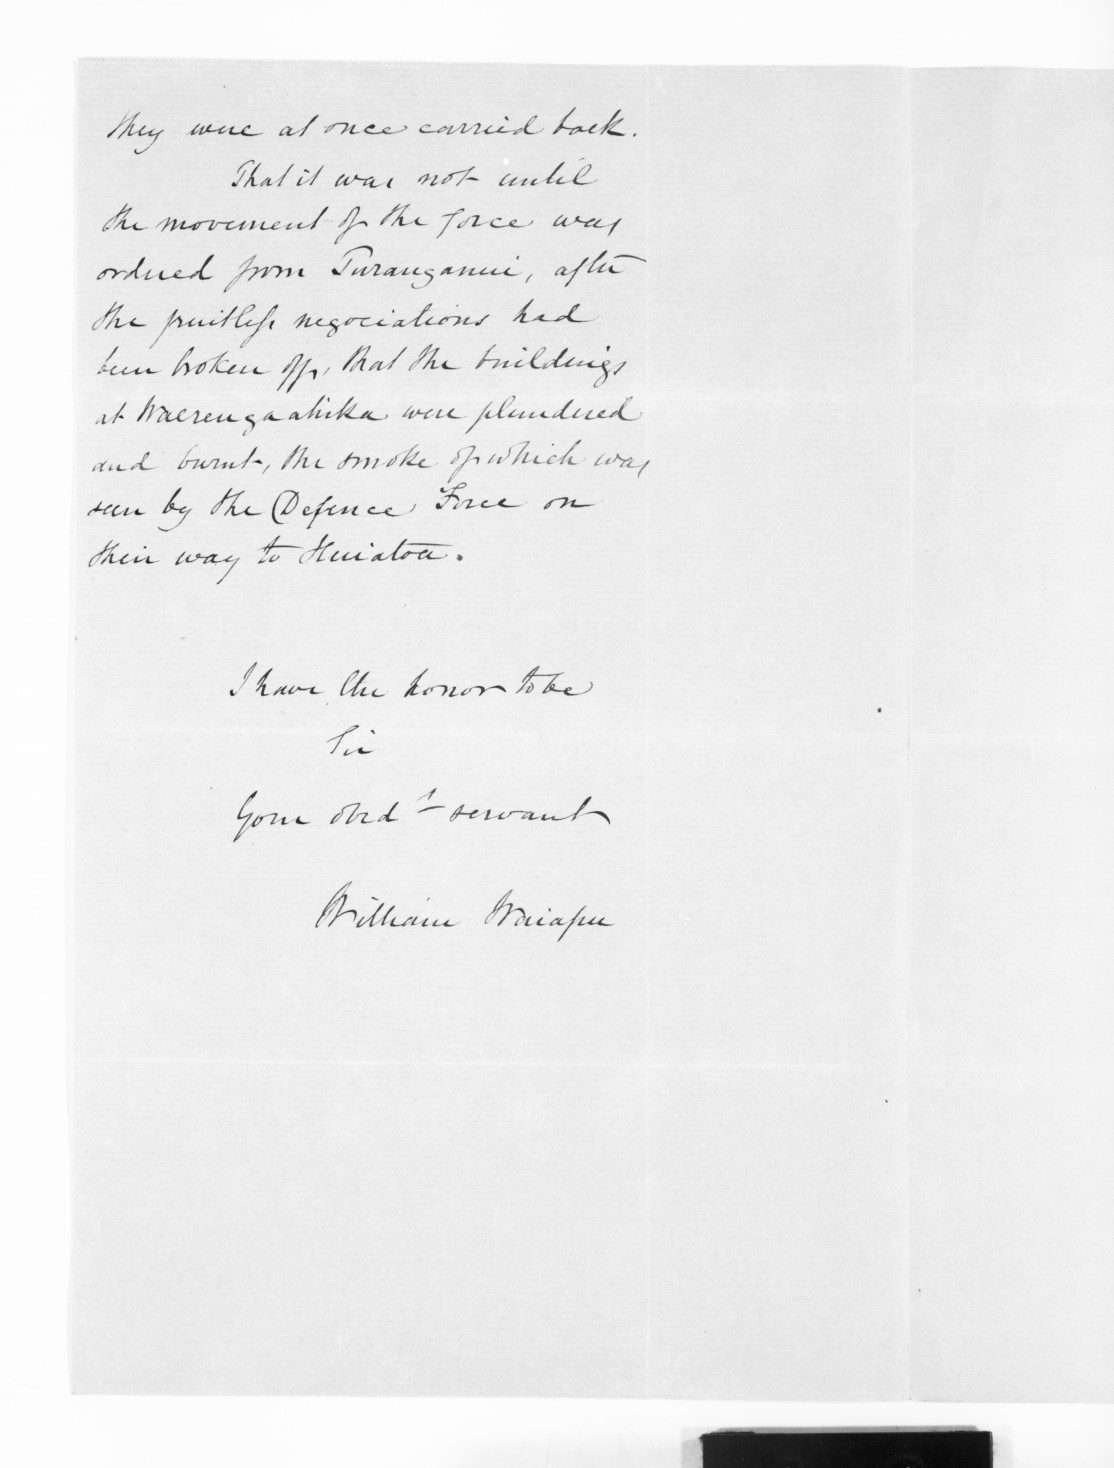 they were at once carried back.
That it was not until
the movement of the force was
ordered from Turanganui, after
the fruitless negociations had
been broken off, that the buildings
at Waerengaahika were plundered
and burnt, the smoke of which was
seen by the Defence Force on
their way to Huiatoa.
I have the honor to be
Sir
Your obed^t servant
William Waiapu